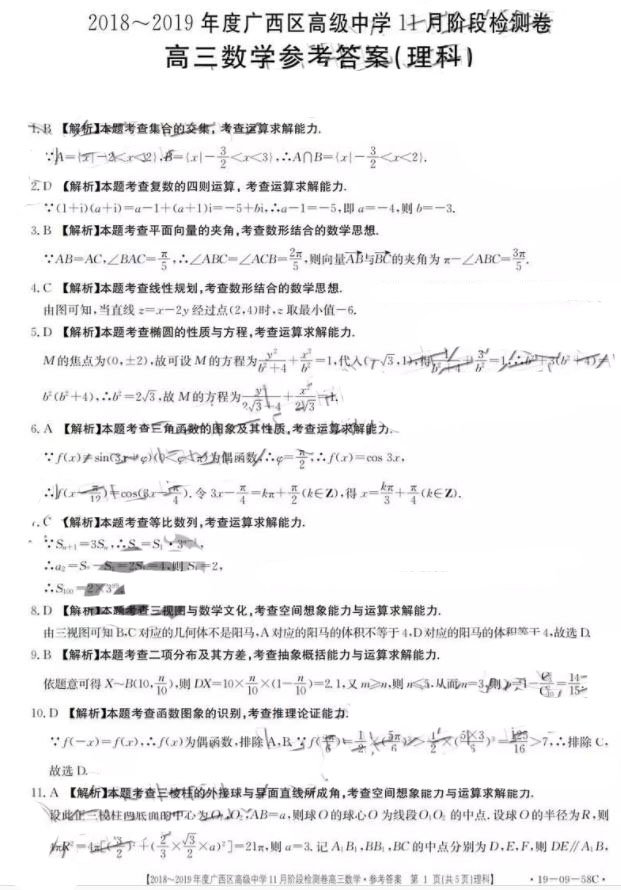 2018~2019 年度广西区高级中学 11 月阶段检测卷
高三数学参考答案(理科)
1. B 【解析】本题考查集合的交集,考查运算求解能力.
∵A={x|-2<x<2},B={x|-3/2<x<3},∴A∩B={x|-3/2<x<2}.
2. D 【解析】本题考查复数的四则运算,考查运算求解能力.
∵(1+i)(a+i)=a-1+(a+1)i=-5+bi,∴a-1=-5,即 a=-4,则 b=-3.
3. B 【解析】本题考查平面向量的夹角,考查数形结合的数学思想.
∵AB=AC,∠BAC=π/5,∴∠ABC=∠ACB=2π/5,则向量AB与BC的夹角为 π-∠ABC=3π/5.
4. C 【解析】本题考查线性规划,考查数形结合的数学思想.
由图可知,当直线 z=x-2y 经过点(2,4)时,z 取最小值-6.
5. D 【解析】本题考查椭圆的性质与方程,考查运算求解能力.
M的焦点为(0,±2),故可设 M 的方程为 y²/(b²+4)+x²/b²=1,代入
b²(b²+4),∴b²=2√3,故 M 的方程为 y²/(2√3+4)+x²/(2√3)=1.
6. A 【解析】本题考查三角函数的图象及其性质,考查运算求解能力.
∵f(x)=sin(3x+φ)(0<φ<π)为偶函数,∴φ=π/2,∴f(x)=cos 3x,
∴f(x-π/12)=cos(3x-π/4).令 3x-π/4=kπ+π/2(k∈Z),得 x=kπ/3+π/4(k∈Z).
7. C 【解析】本题考查等比数列,考查运算求解能力.
∵Sₙ₊₁=3Sₙ,∴Sₙ=S₁·3ⁿ⁻¹,
∴a₂=S₂-S₁=2S₁
∴S₁₀₀=2×3⁹⁹.
8. D 【解析】本题考查三视图与数学文化,考查空间想象能力与运算求解能力.
由三视图可知 B,C 对应的几何体不是阳马,A 对应的阳马的体积不等于 4,D 对应的阳马的体积等于 4,故选 D.
9. B 【解析】本题考查二项分布及其方差,考查抽象概括能力与运算求解能力.
依题意可得 X~B(10,n/10),则 DX=10×n/10×(1-n/10)=2.1,又 m≥n,则 n≤5,从而n=3,则 =14/15.
10. D 【解析】本题考查函数图象的识别,考查推理论证能力.
∵f(-x)=f(x),∴f(x)为偶函数,排除 A,B. =125/16>7,∴排除 C,
故选 D.
11. A 【解析】本题考查三棱柱的外接球与异面直线所成角,考查空间想象能力与运算求解能力.
设此正三棱柱两底面的中心为 O₁,O₂,AB=a,则球O 的球心O 为线段O₁O₂ 的中点.设球O 的半径为R,则
4πR²=4π[(3/2)²+(2/3×√3/2×a)²]=21π,则 a=3.记 A₁B₁,BB₁,BC 的中点分别为 D,E,F,则 DE∥A₁B,
【2018~2019年度广西区高级中学11月阶段检测卷高三数学·参考答案 第 1 页(共5页)理科】
·19-09-58C·